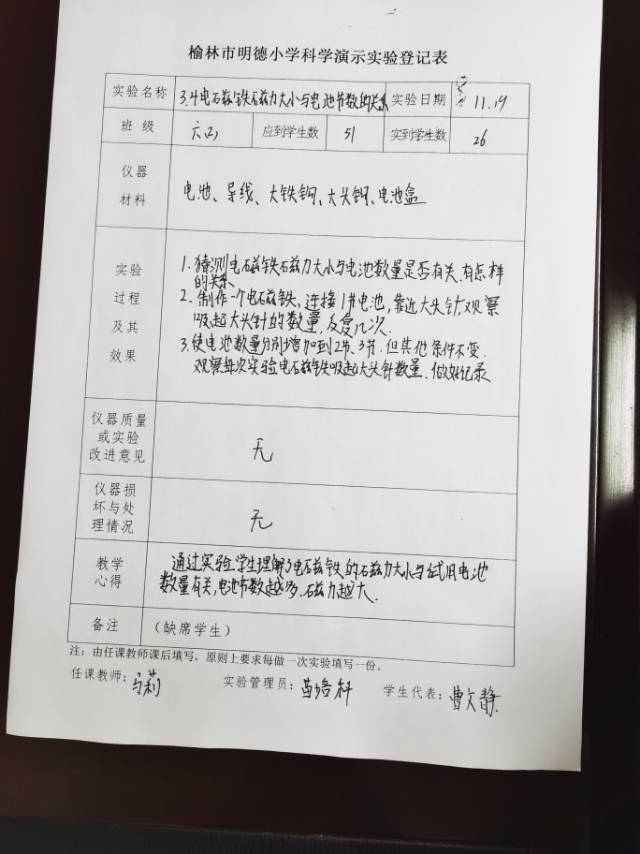 榆林市明德小学科学演示实验登记表
实验名称 3.4电磁铁磁力大小与电池节数的关系 实验日期 11.19
班级 六(2) 应到学生数 51 实到学生数 26
仪器
材料
电池、导线、大铁钉、大头针、电池盒
实验
过程
及其
效果
1.猜测电磁铁磁力大小与电池数量是否有关,有怎样
的关系
2.制作一个电磁铁,连接1节电池,靠近大头针,观察
吸起大头针的数量,反复几次.
3.使电池数量分别增加到2节、3节.但其他条件不变.
观察每次实验电磁铁吸起大头针数量.做好记录
仪器质量
或实验
改进意见
无
仪器损
坏与处
理情况
无
教学
心得
通过实验学生理解了电磁铁的磁力大小与使用电池
数量有关,电池节数越多.磁力越大.
备注 (缺席学生)
注:由任课教师课后填写,原则上要求每做一次实验填写一份。
任课教师:马莉 实验管理员: 学生代表:曹文静